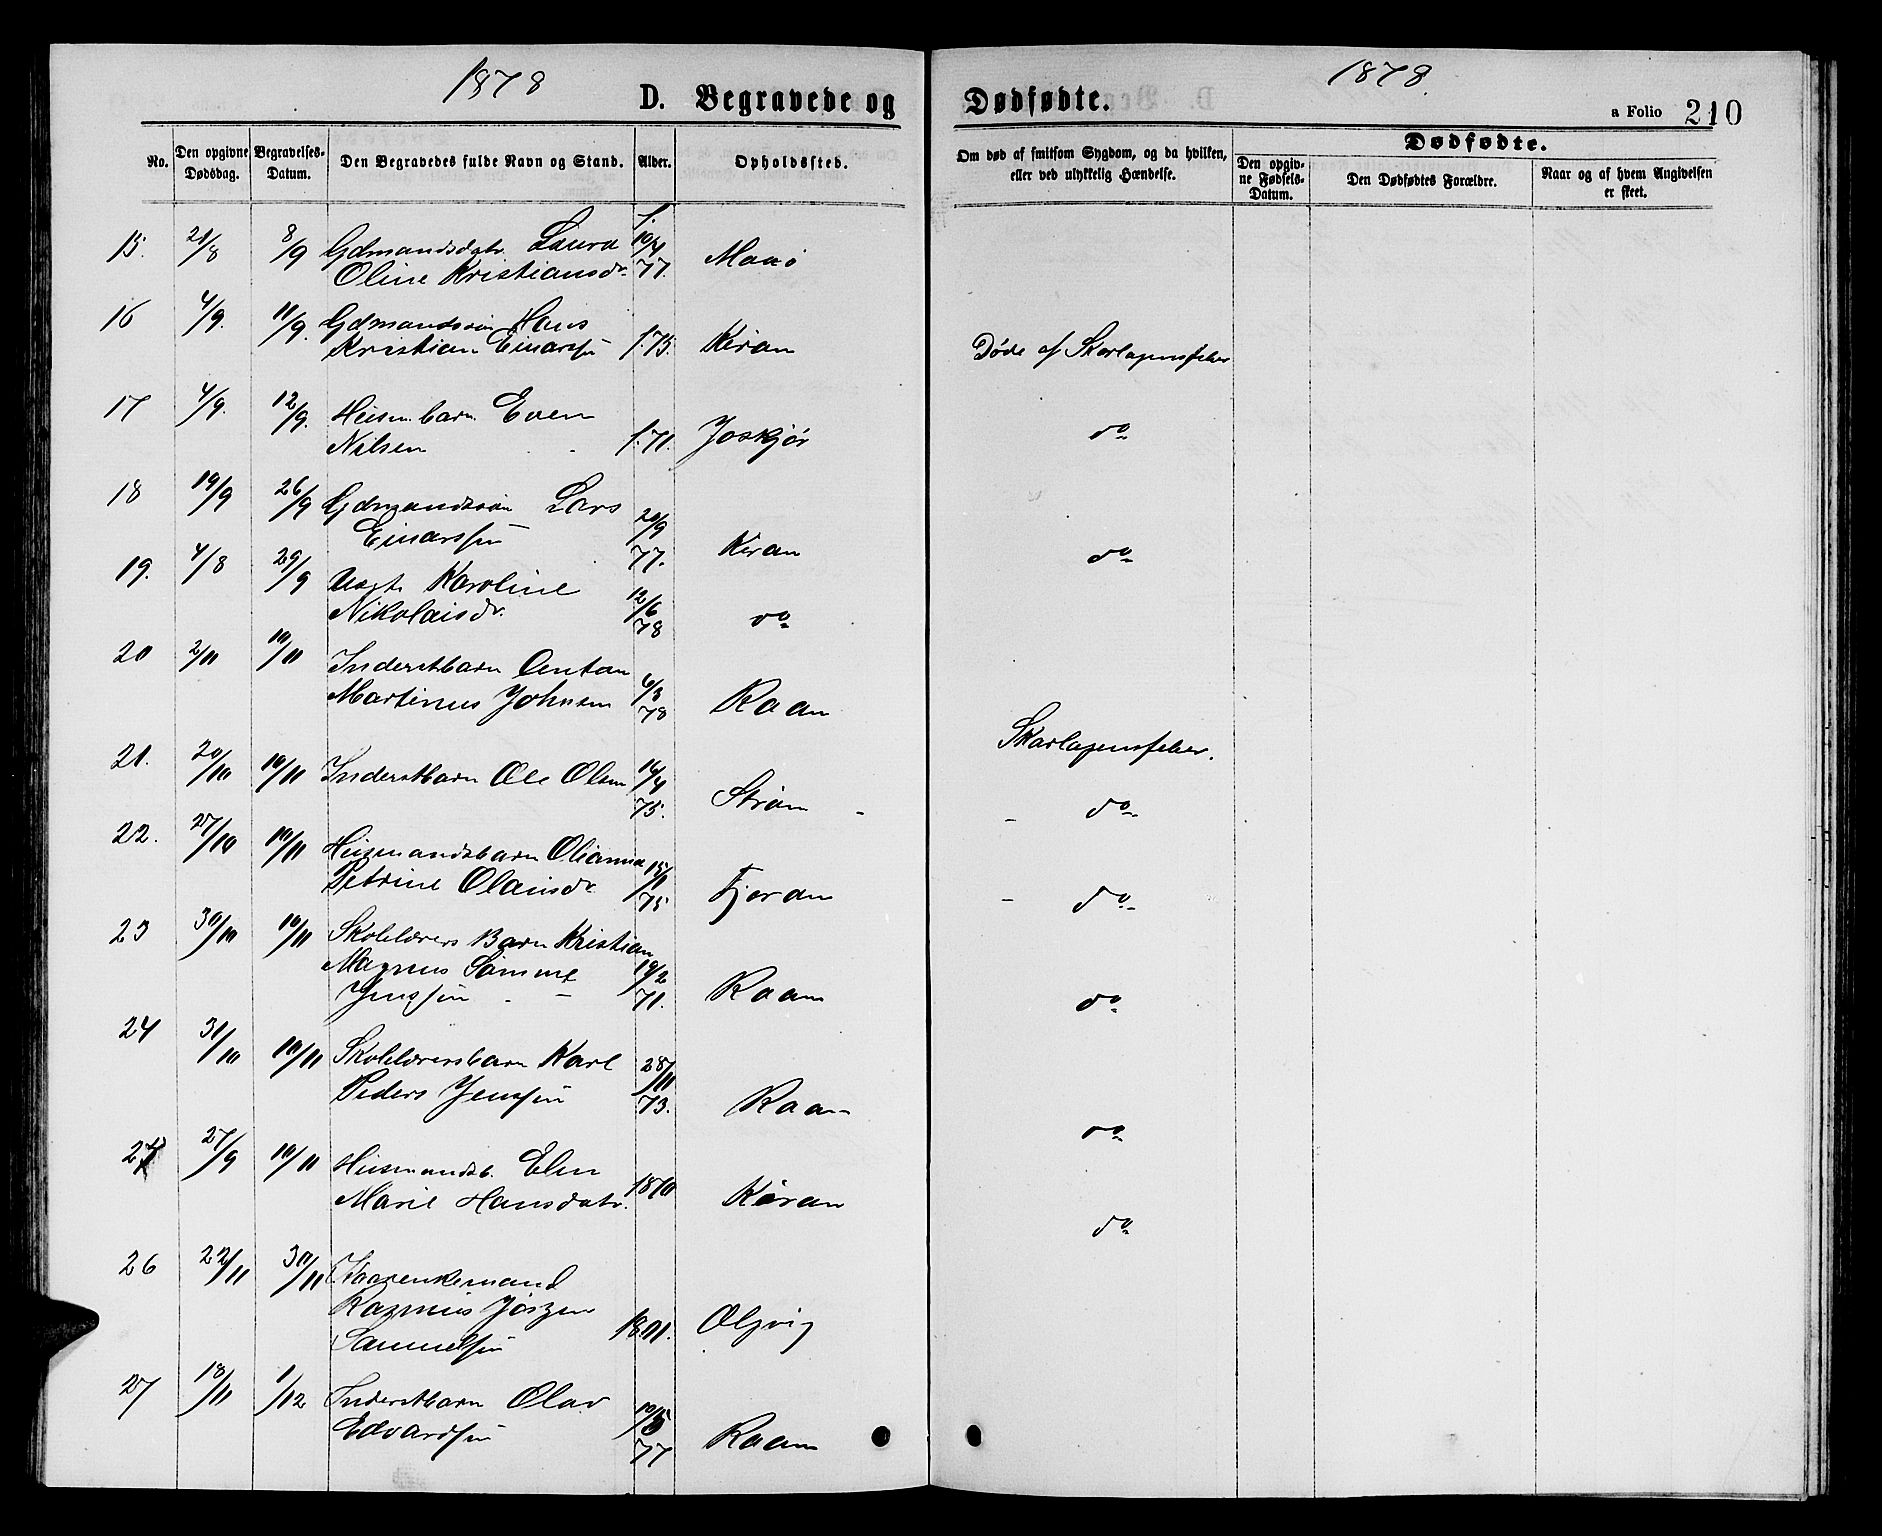 1878
D. Begravede og
No.
Den opgivne Dødsdag.
Begravelses-Datum.
Den Begravedes fulde Navn og Stand.
Alder.
Opholdssted.
15. 21/8 8/9 Gdmandsdatr. Laura 10/4
Oline Kristiansdr. 77. Maaø
16 4/9. 11/9. Gdmandssøn Hans
Kristian Einarssen 1.75. Kiran
17 4/9. 12/9. Husm. barn Even
Nilsen 1.71. Joskjør
18 19/9 26/9 Gdmandssøn Lars 20/9
Einarssen 77. Kiran
19. 4/8 29/9 Uægt. Karoline 12/6
Nikolaisdr. 78 do
20 2/11 10/11 Inderstbarn Anton
Martinus Johnsen 6/3 78 Raan
21. 20/10 10/11 Inderstbarn Ole Olsen 16/4
75. Strøm
22. 27/10 10/11 Husmandsbarn Olianna 15/1
Petrine Olausdr 75 Fjordan
23 30/10 10/11 Skolelærers Barn Kristian
Magnus Sømme 19/2
Jenssen 71. Raan
24 31/10 10/11 Skolelærersbarn Karl 28/11
Peders Jenssen 73. Raan
27/9 10/11 Husmandsb. Elen
Marie Hansdatr. 1870 Kiran
26 22/11 30/11 Kaarenkemand
Rasmus Jørgen
Samuelsen 1801. Olsvig
27 18/11 1/12 Inderstbarn Olav 10/5
Edvardsen 77 Raan
1878.
Dødfødte.
a Folio 210
Om død af smitsom Sygdom, og da hvilken,
eller ved ulykkelig Hændelse.
Dødfødte.
Den opgiv-
ne Fødsels-
Datum.
Den Dødfødtes Forældre.
Naar og af hvem Angivelsen
er skeet.
Døde af Skarlagensfeber
do
do
Skarlagensfeber.
- do
- do
do
do
do